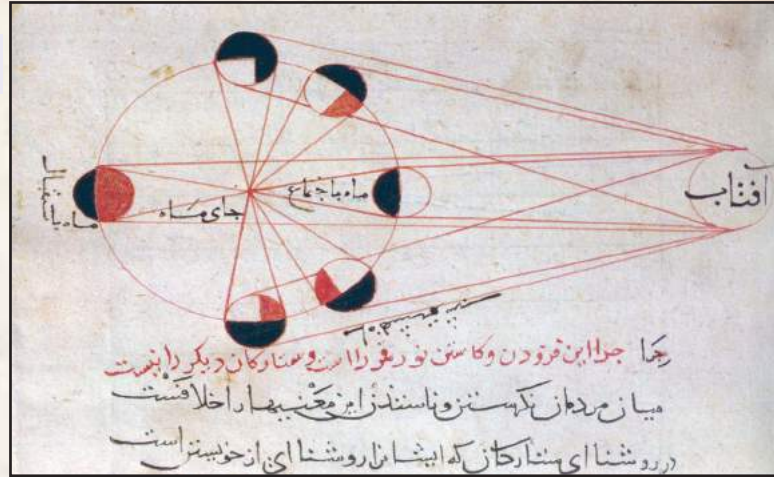 افتاب
ماه باجتماع
جای ماه
ماه باستقبال
چرا این فزودن و کاستن نور قمر راست و ستارکان دیکر را نیست
میان مردمان نکرستن و ناسندن این معنیها را خلافست
در روشنا ای ستارکان که ایشانرا روشنا ای از خویشتن است